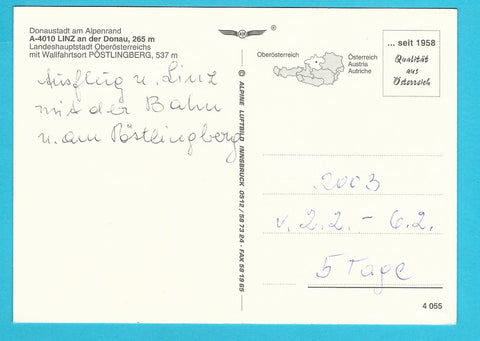 Donaustadt am Alpenrand
A-4010 LINZ an der Donau, 265 m
Landeshauptstadt Oberösterreichs
mit Wallfahrtsort PÖSTLINGBERG, 537 m
Ausflug n. Linz
mit der Bahn
u. am Pöstlingberg
®
© ALPINE LUFTBILD INNSBRUCK 0512/58 73 24 - FAX 58 19 65
Oberösterreich
Österreich
Austria
Autriche
... seit 1958
Qualität
aus
Österreich
2003
v. 2.2. - 6.2.
5 Tage
4 055